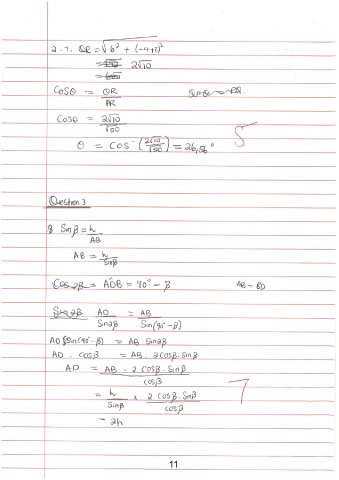 2.7. QR = √6² + (-4+2)²
= 2√10
Cosθ = QR/PR
Cosθ = 2√10/√50
θ = Cos⁻(2√10/√50) = 26,56°
5
Question 3
Sinβ = h/AB
AB = h/Sinβ
Cos2β = AÔB = 90° - β AB - BD
Sin2β AD/Sin2β = AB/Sin(90°-β)
AD Sin(90°-β) = AB Sin2β
AD . Cosβ = AB . 2Cosβ.Sinβ
AD = AB . 2Cosβ.Sinβ/Cosβ
= h/Sinβ × 2Cosβ.Sinβ/Cosβ
7
= 2h
11